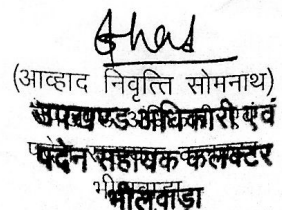 (आव्हाद निवृत्ति सोमनाथ)
उपखण्ड अधिकारी एवं
पदेन सहायक कलक्टर
भीलवाड़ा